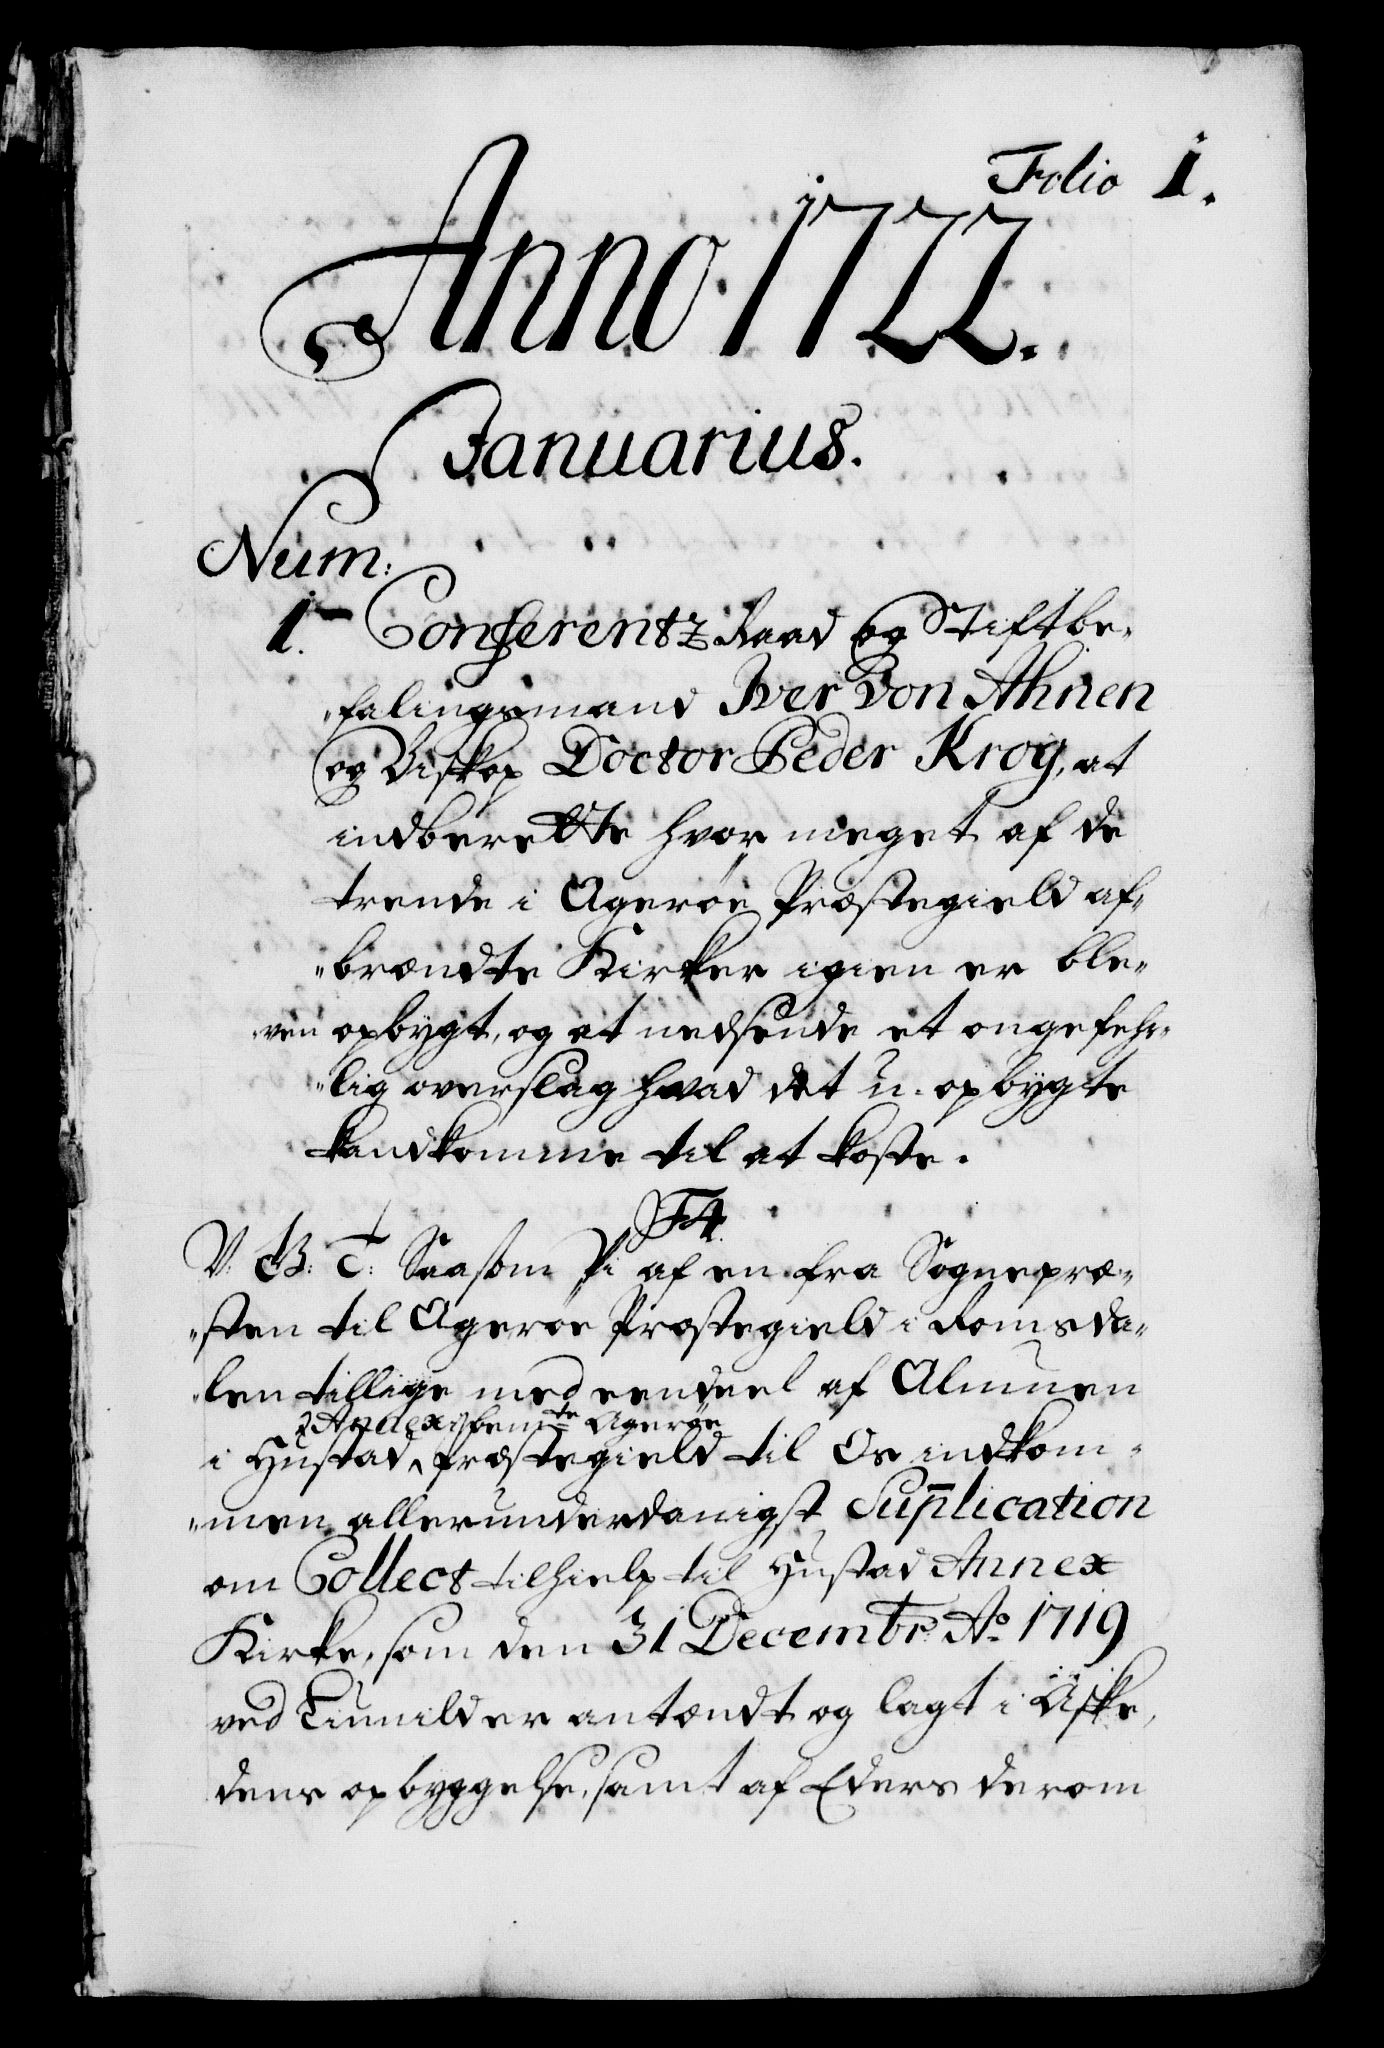 Folio 1.
Anno 1722.
Januarius.
Num:
1. Conferentz Raad og Stiftbe-
falingsmand Iver Von Ahnen
og Biskop Doctor Peder Krog, at
indberette hvor meget af de
trende i Agerøe Præstegield af-
brændte Kirker igien er ble-
ven opbygt, og at nedsende et ongefehr-
lig overslag hvad det u-opbygte
kand komme til at koste.
F4.
V: G: T: Saasom Vi af en fra Sognepræ-
sten til Agerøe Præstegield i Romsda-
len tillige med eendeel af Almuen
i Hustad Præstegield til Os indkom-
2 Annex i bem.te Agerøe
men allerunderdanigst Suplication
om Collect til hielp til Hustad Annex
Kirke, som den 31 Decembr: Ao. 1719
ved Liunild er antændt og lagt i Aske,
dens opbyggelse, samt af Eders derom